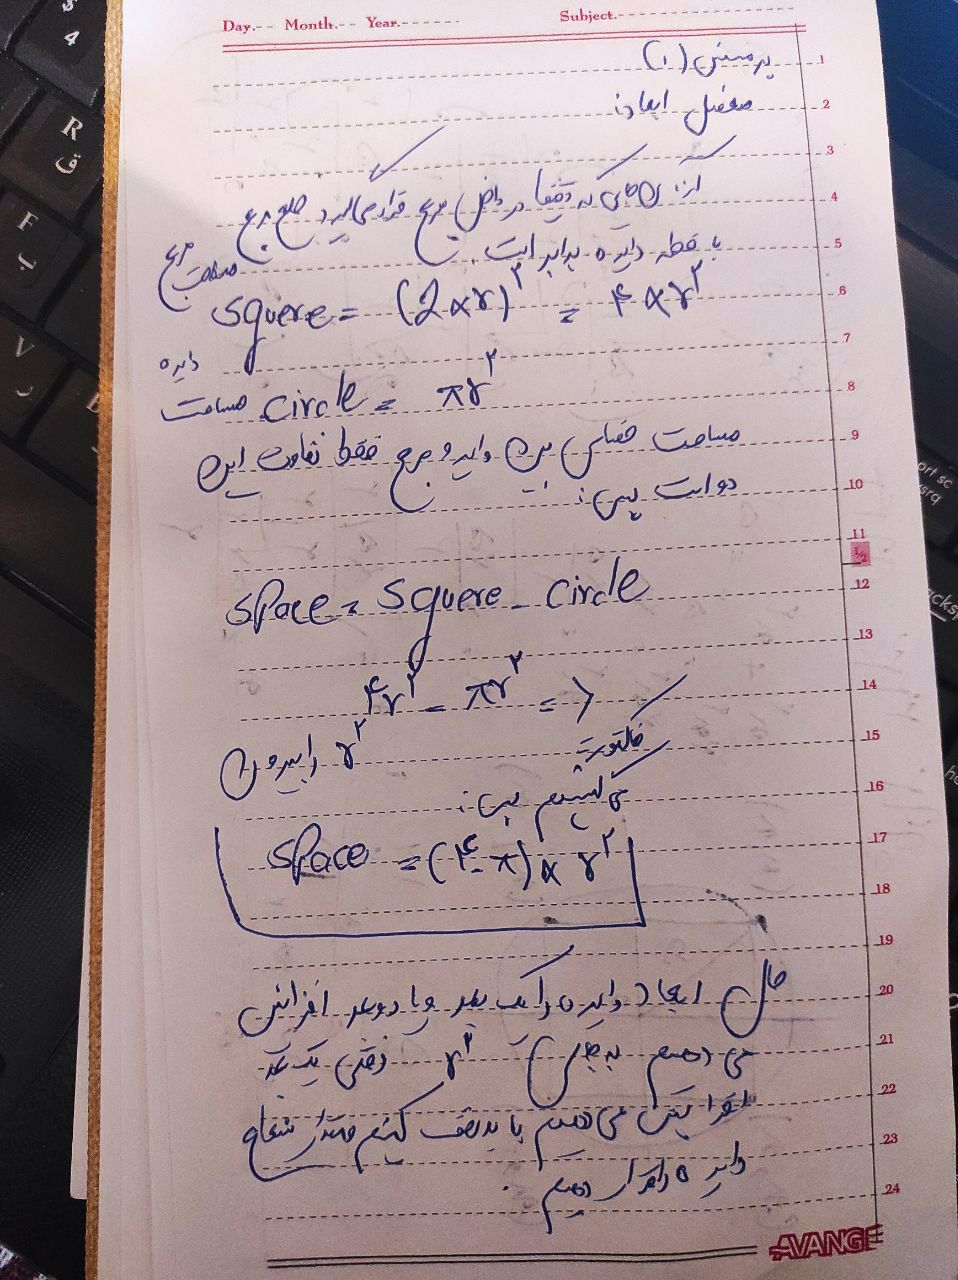 Day. Month. Year. Subject.
پرسش (۱)
معضل ابعاد:
از آنجایی که دقیقا در داخل مربع قرار می‌گیرد ضلع مربع
با قطر دایره برابر است.
مساحت مربع
squere = (2×r)^۲ = ۴×r^۲
مساحت دایره
circle = πr^۲
مساحت فضای بین دایره و مربع فقط تفاوت این
دو است پس:
space = squere - circle
۴r^۲ - πr^۲ =>
r^۲ را بیرون فاکتور
می‌کشیم پس:
space = (۴-π)×r^۲
حال ابعاد دایره را یک بعد و یا دو بعد افزایش
می دهیم به جای r^۲ وقتی یک بعد
افزایش می دهیم باید نصف کنیم مقدار شعاع
دایره را قرار دهیم.
1
2
3
4
5
6
7
8
9
10
11
1/2
12
13
14
15
16
17
18
19
20
21
22
23
24
AVANGE
$
4
R
ق
F
ب
V
ر